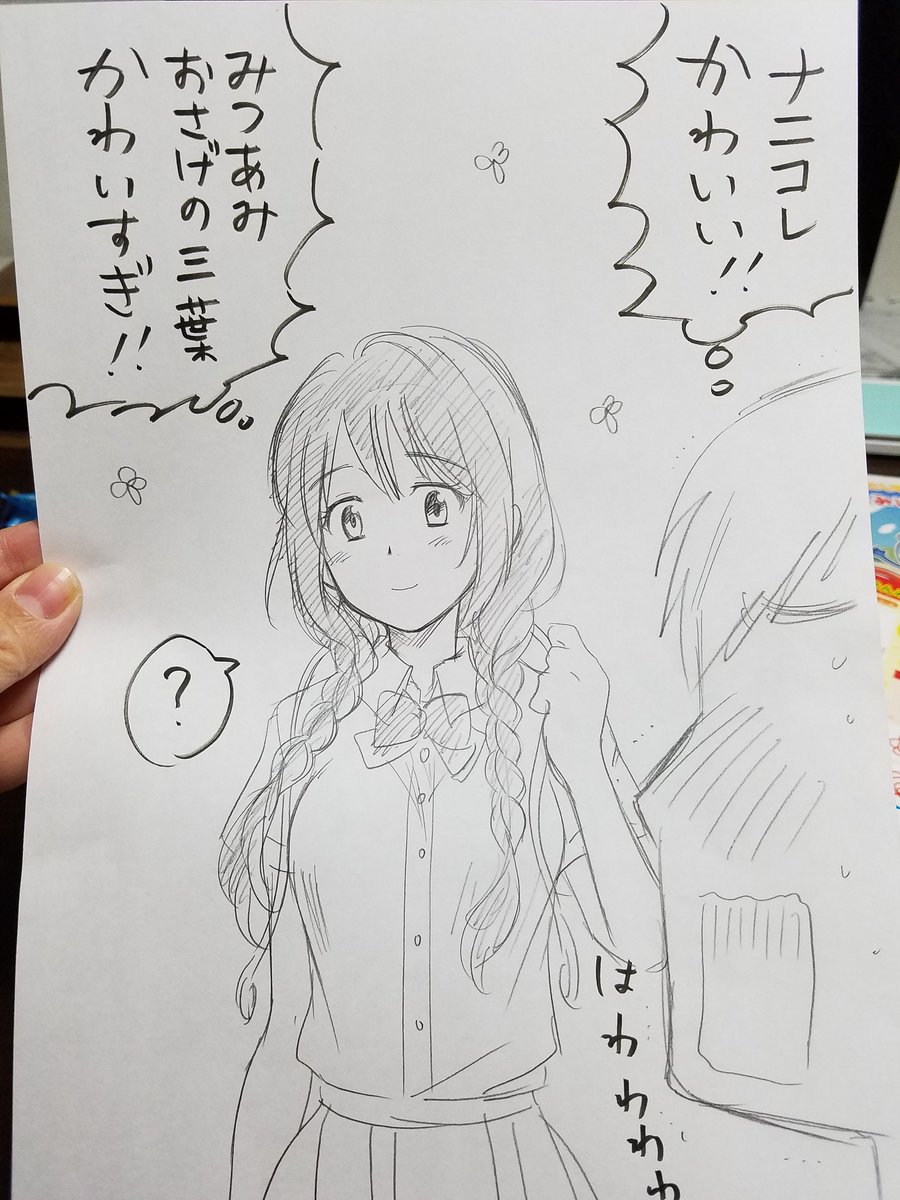 ナニコレ
かわいい!!
みつあみ
おさげの三葉
かわいすぎ!!
?
はわわわわ